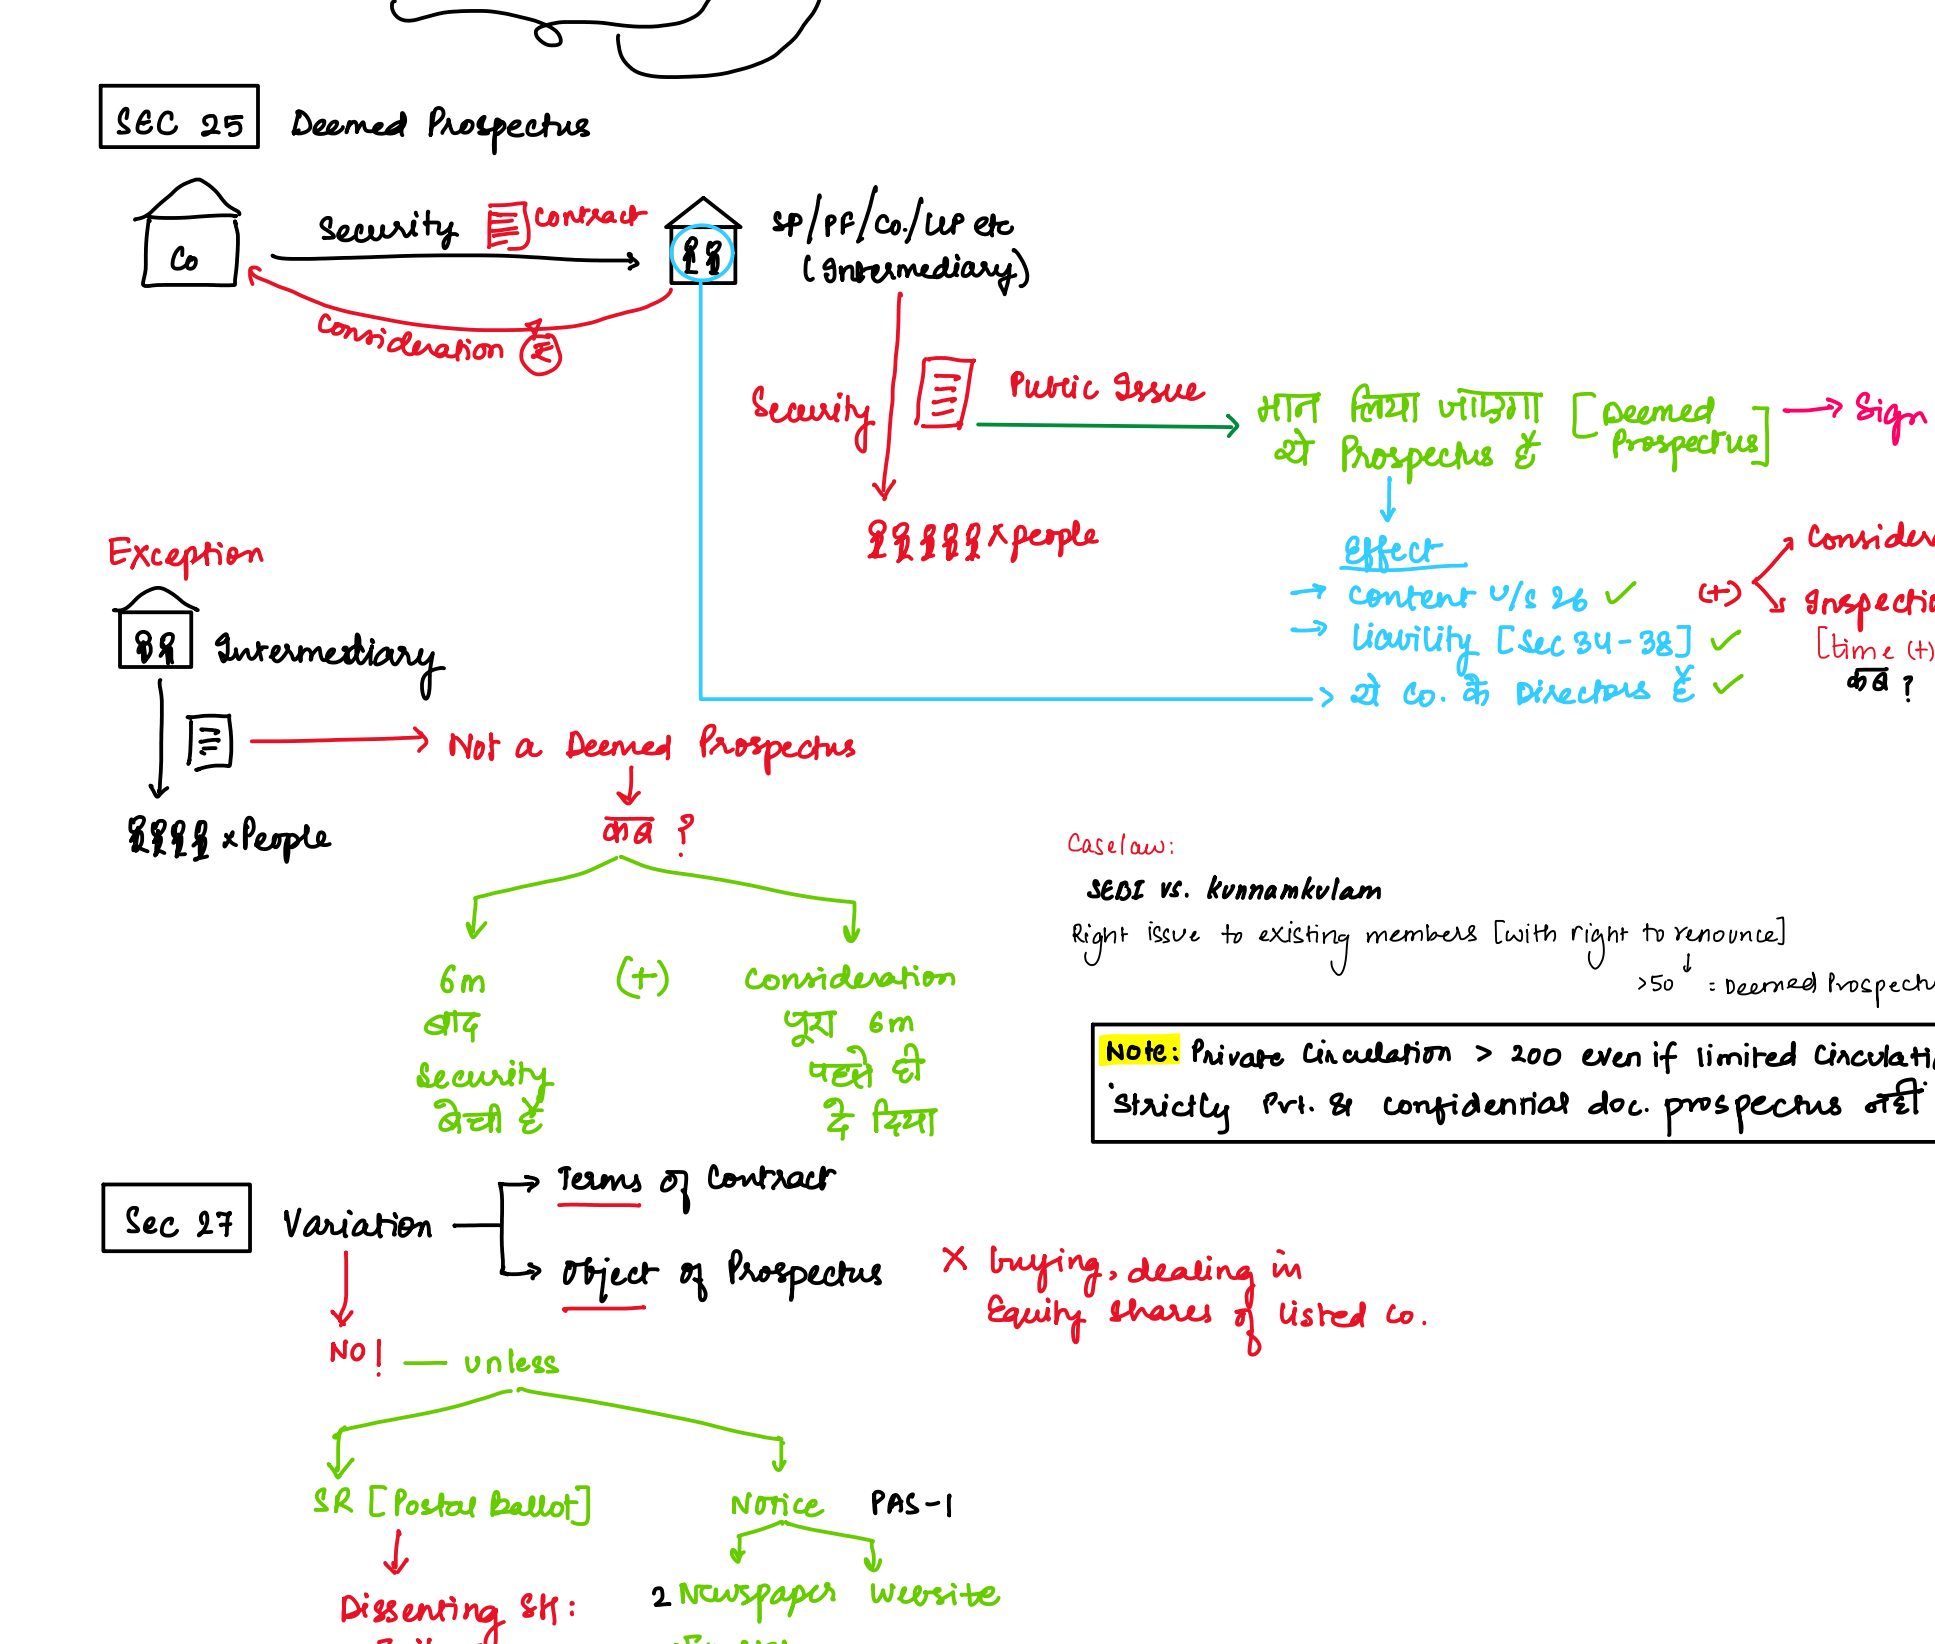 SEC 25 Deemed Prospectus
Security contract
Co
SP/PF/Co./LLP etc
(Intermediary)
Consideration ₹
Security
Public Issue
मान लिया जाएगा
ये Prospectus है
[Deemed Prospectus]
Sign
x people
Effect
Content u/s 26 ✓
Liability [Sec 34-38] ✓
ये Co. के Directors है ✓
(+)
[time (+)
कब ?
Exception
Intermediary
Not a Deemed Prospectus
x People
कब ?
6m
बाद
Security
बेची है
(+)
Consideration
पूरा 6m
पहले ही
दे दिया
Caselaw:
SEBI vs. Kunnamkulam
Right issue to existing members [with right to renounce]
>50 = Deemed
Note: Private Circulation > 200 even if limited
Strictly Prt. & confidential doc. prospectus नहीं
Sec 27 Variation
Terms of Contract
Object of Prospectus
X buying, dealing in
Equity shares of listed co.
NO! — unless
SR [Postal Ballot]
Notice PAS-1
Dissenting SH:
2 Newspaper Website